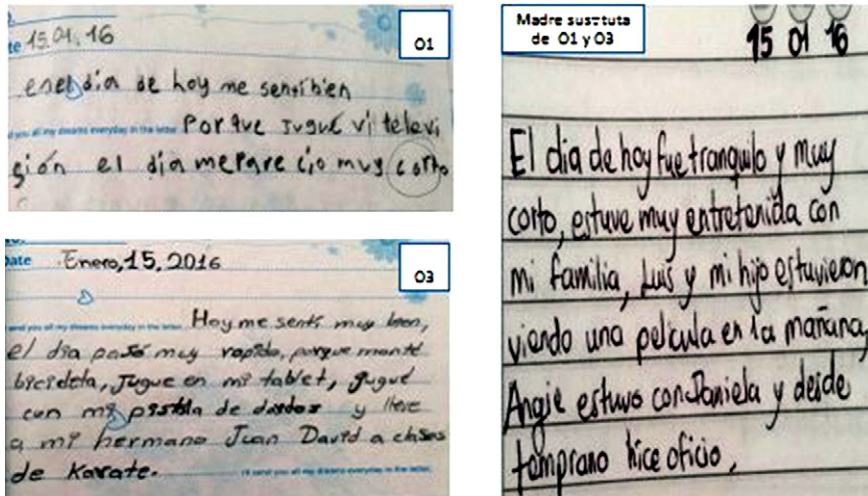 te 15.01.16
01
en el dia de hoy me sentí bien
d you all my dreams everyday in the letter. Porque jugué vi televi
sión el dia me pare cio muy corto
Date Enero, 15, 2016
03
send you all my dreams everyday in the letter. Hoy me sentí muy bien,
el día pasó muy rapido, porque monté
bicicleta, Jugue en mi tablet, jugué
con mi pistola de dardos y lleve
a mi hermano Juan David a clases
de Karate. I'll send you all my dreams everyday in the letter.
Madre sustituta
de 01 y 03
15 01 16
El dia de hoy fue tranquilo y muy
corto, estuve muy entretenida con
mi familia, Luis y mi hijo estuvieron
viendo una pelicula en la mañana,
Angie estuvo con Daniela y desde
temprano hice oficio,